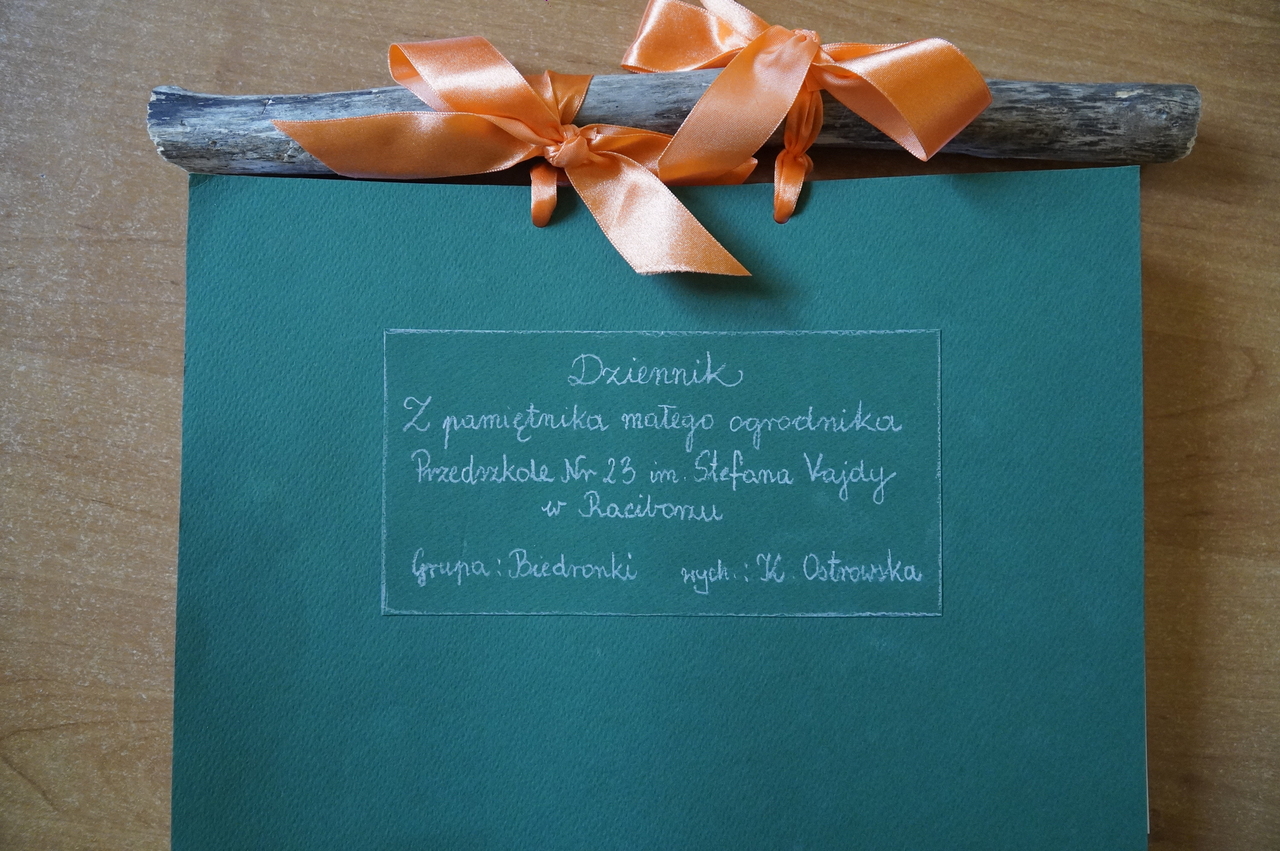 Dziennik
Z pamiętnika małego ogrodnika
Przedszkole Nr 23 im. Stefana Vajdy
w Raciborzu
Grupa: Biedronki wych.: K. Ostrowska